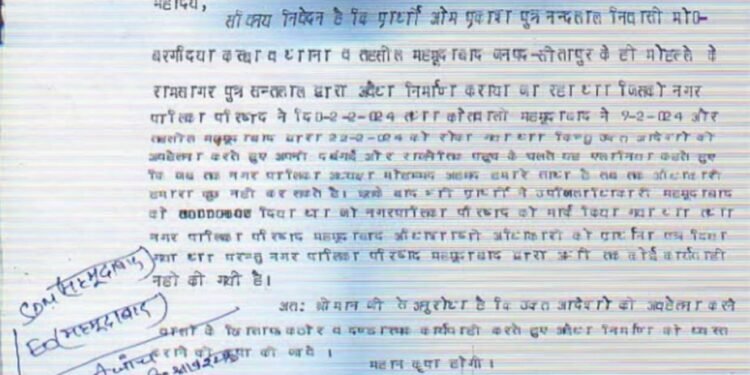 महोदय,
सविनय निवेदन है कि प्रार्थी ओम प्रकाश पुत्र नन्दलाल निवासी मो0-
बरगदिया कस्बा व थाना व तहसील महमूदाबाद जनपद-सीतापुर के ही मोहल्ले के
रामसागर पुत्र सन्तलाल द्वारा अवैध निर्माण कराया जा रहा था जिसको नगर
पालिका परिषद ने दि0-2-2-024 तथा कोतवाली महमूदाबाद ने 9-2-024 और
तहसील महमूदाबाद द्वारा 22-2-024 को रोका गया था किन्तु उक्त आदेशों को
अवहेलना करते हुए अपनी दबंगई और राजनैतिक पहुंच के चलते यह कहते हुए
कि जब तक नगर पालिका अध्यक्ष मोहम्मद अहमद हमारे साथ है तब तक अधिकारी
हमारा कुछ नहीं कर सकते है। इसके बाद भी प्रार्थी ने उपजिलाधिकारी महमूदाबाद
को दिया था जो नगरपालिका परिषद को मार्क किया गया था तथा
नगर पालिका परिषद महमूदाबाद अधिशाषी अधिकारी को प्रार्थना पत्र दिया
गया था परन्तु नगर पालिका परिषद महमूदाबाद द्वारा अभी तक कोई कार्यवाही
नहीं की गयी है।
अतः श्रीमान जी से अनुरोध है कि उक्त आदेशों को अवहेलना करने
वालों के खिलाफ कठोर व दण्डात्मक कार्यवाही करते हुए अवैध निर्माण को ध्वस्त
कराने की कृपा की जावे।
महान कृपा होगी।
SDM (महमूदाबाद)
EO (महमूदाबाद)